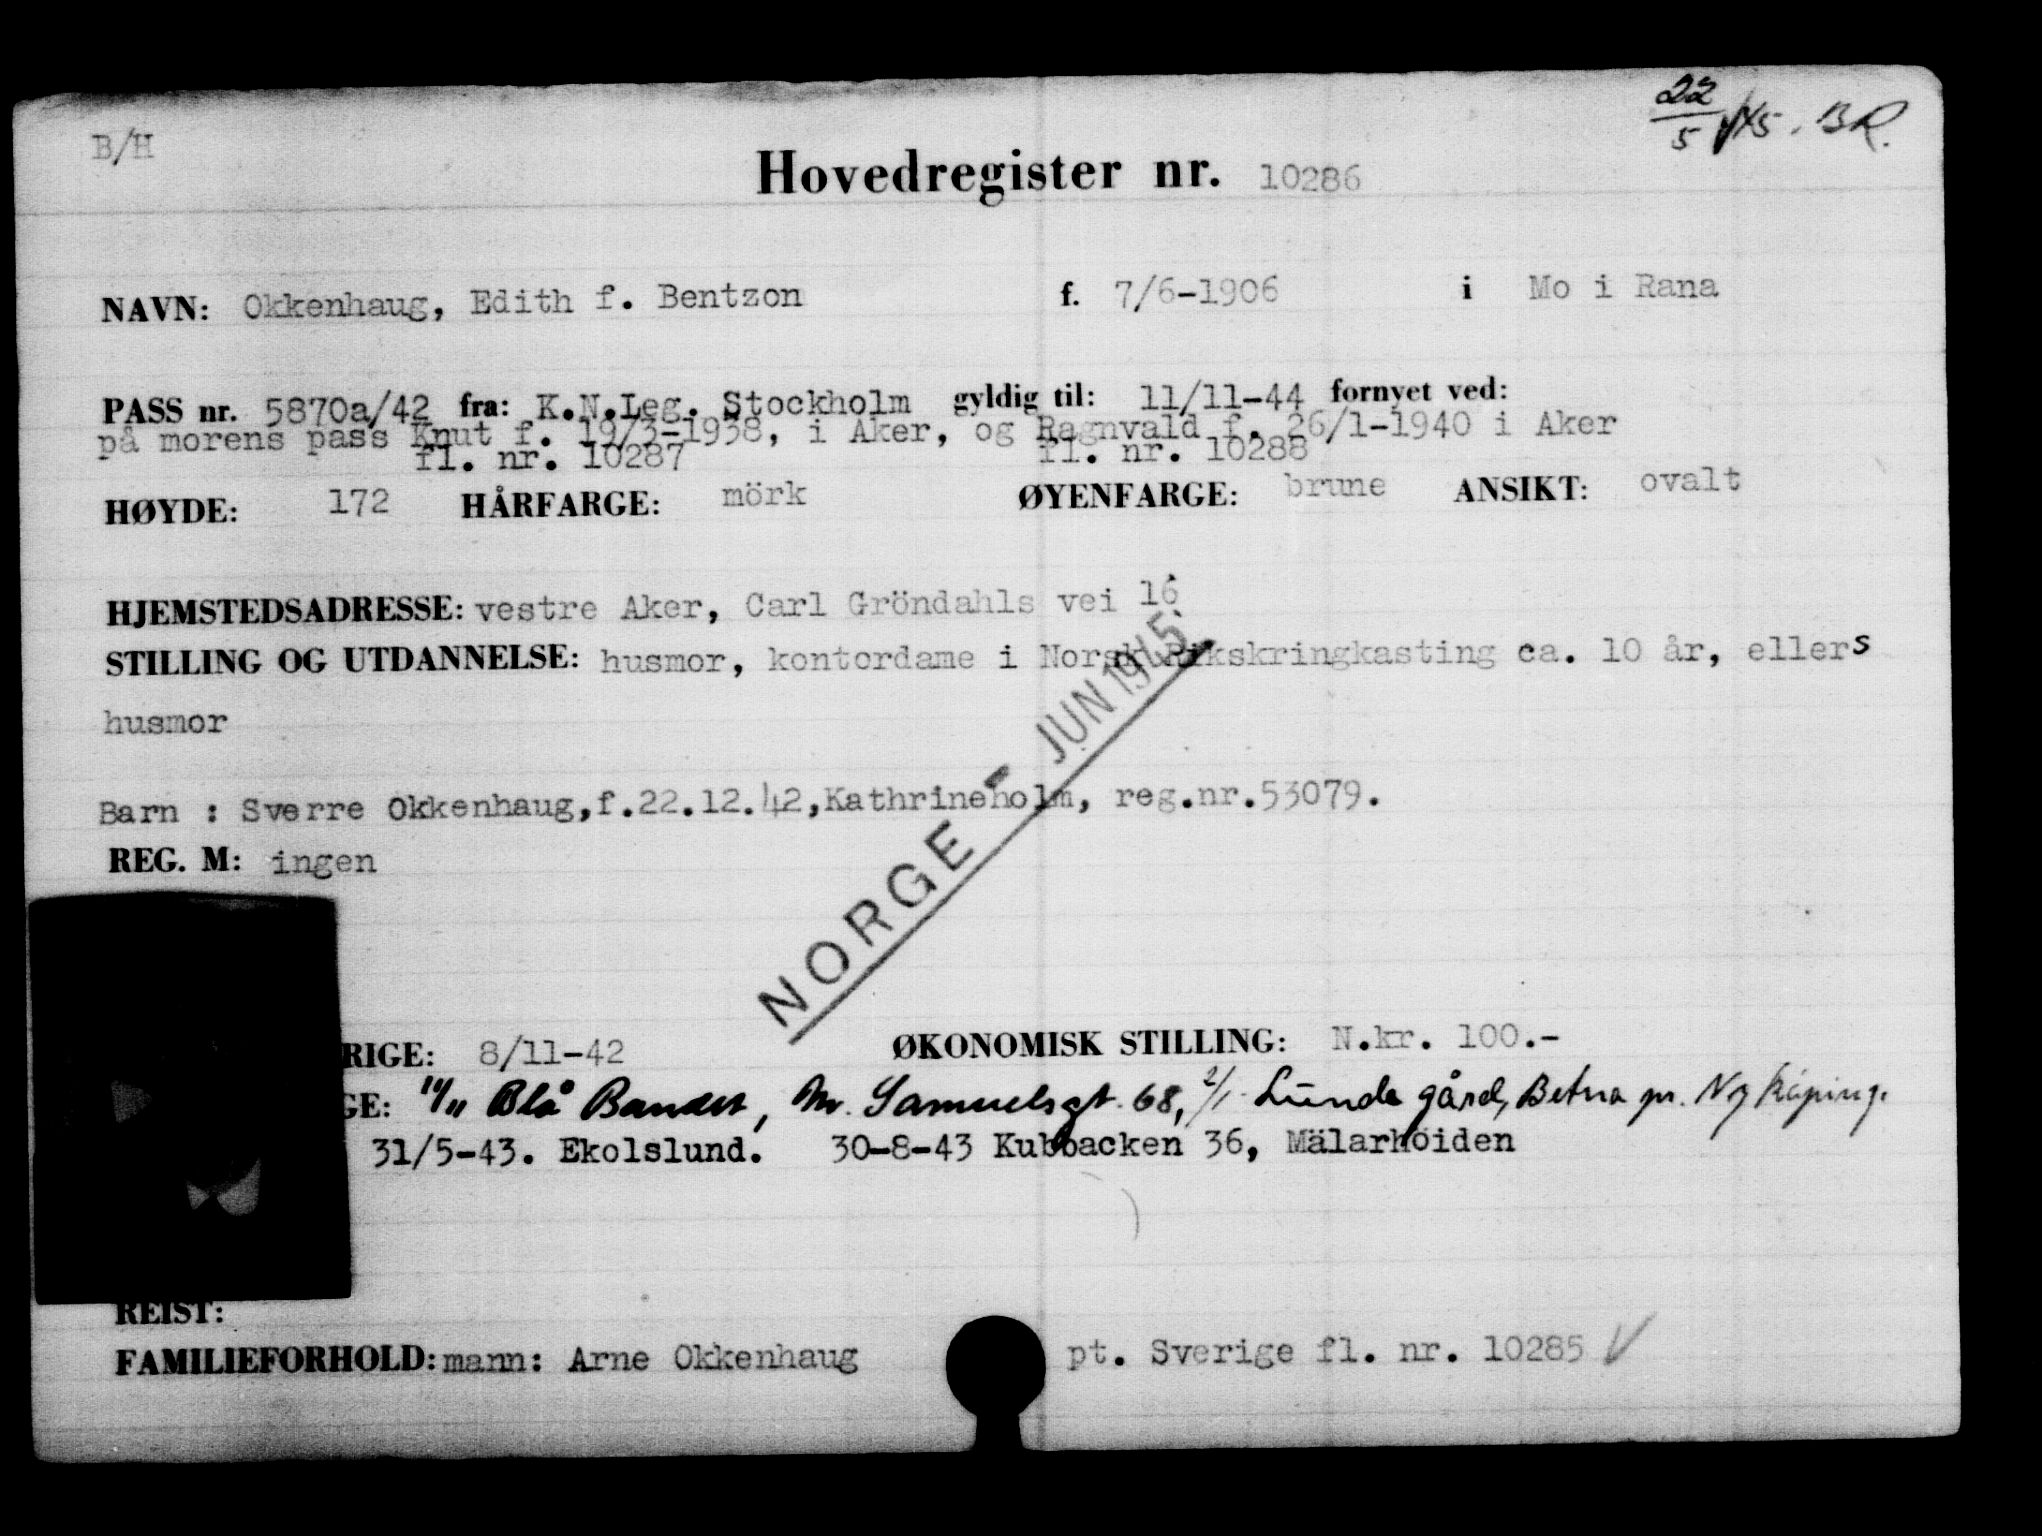 22/5 45. BR.
B/H
Hovedregister nr. 10286
NAVN: Okkenhaug, Edith f. Bentzon f. 7/6-1906 i Mo i Rana
PASS nr. 5870a/42 fra: K.N.Leg. Stockholm gyldig til: 11/11-44 fornyet ved:
på morens pass Knut f. 19/3-1938, i Aker, og Ragnvald f. 26/1-1940 i Aker
fl. nr. 10287 fl. nr. 10288
HØYDE: 172 HÅRFARGE: mörk ØYENFARGE: brune ANSIKT: ovalt
HJEMSTEDSADRESSE: vestre Aker, Carl Gröndahls vei 16
STILLING OG UTDANNELSE: husmor, kontordame i Norsk Rikskringkasting ca. 10 år, ellers
husmor
Barn : Sverre Okkenhaug,f.22.12.42,Kathrineholm, reg.nr.53079.
REG. M: ingen
NORGE - JUN 1945
RIGE: 8/11-42 ØKONOMISK STILLING: N.kr. 100.-
GE: 11/11 Blå Bandet, M. Samuelsgt. 68, 2/1 Lunda gård, Betna pr. Nyköping.
31/5-43. Ekolslund. 30-8-43 Kubbacken 36, Mälarhöiden
REIST:
FAMILIEFORHOLD: mann: Arne Okkenhaug pt. Sverige fl. nr. 10285